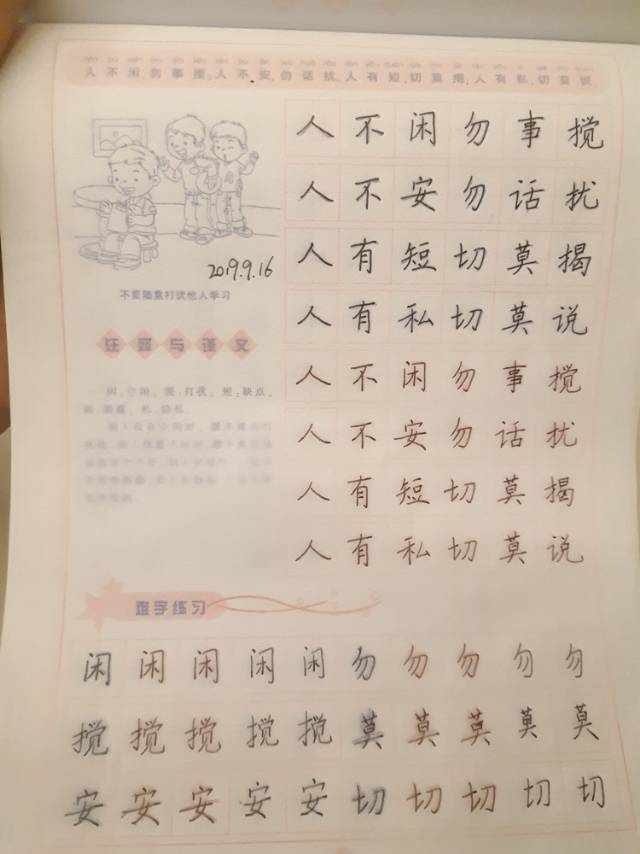 人不闲,勿事搅;人不安,勿话扰,人有短,切莫揭,人有私,切莫说
人不闲勿事搅
人不安勿话扰
人有短切莫揭
人有私切莫说
人不闲勿事搅
人不安勿话扰
人有短切莫揭
人有私切莫说
2019.9.16
不要随意打扰他人学习
注释与译文
闲:空闲。搅:打扰。短:缺点。
难字练习
闲闲闲闲闲勿勿勿勿勿
搅搅搅搅搅莫莫莫莫莫
安安安安安切切切切切